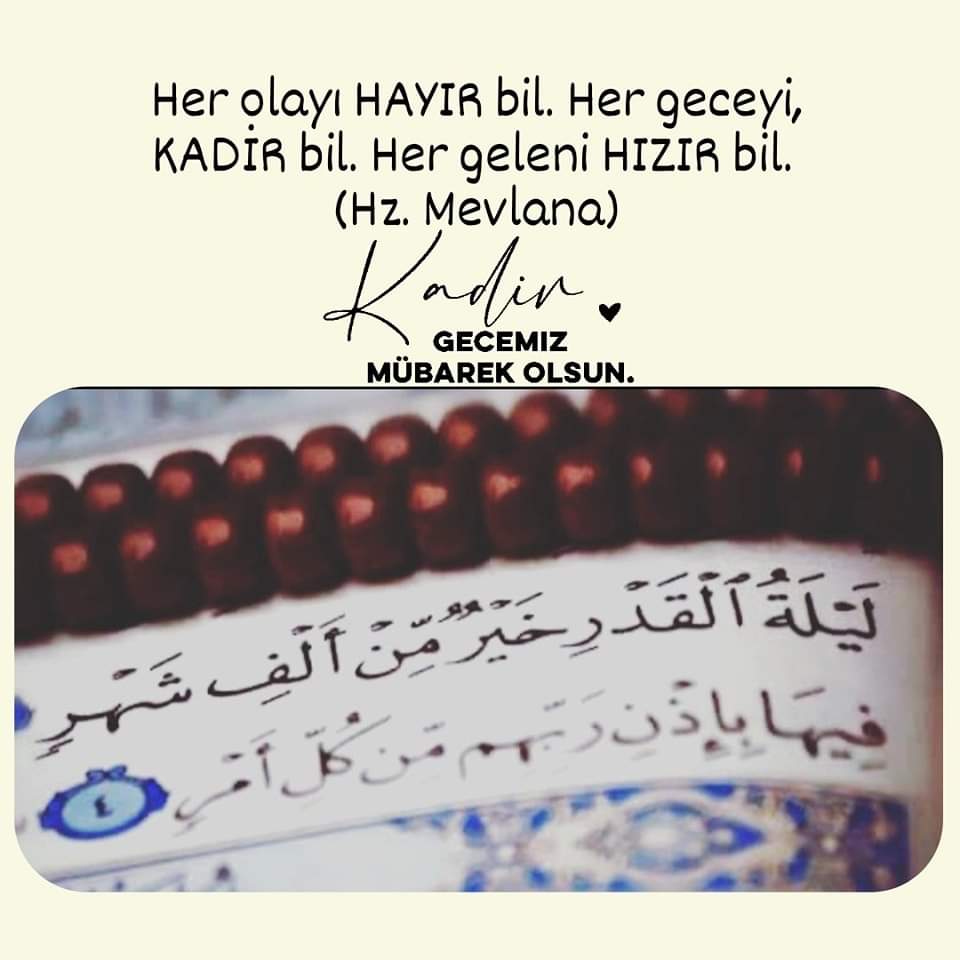 Her olayı HAYIR bil. Her geceyi,
KADİR bil. Her geleni HIZIR bil.
(Hz. Mevlana)
Kadir
GECEMIZ
MÜBAREK OLSUN.
لَيْلَةُ ٱلْقَدْرِ خَيْرٌ مِّنْ أَلْفِ شَهْرٍ
فِيهَا بِإِذْنِ رَبِّهِم مِّن كُلِّ أَمْرٍ ٤